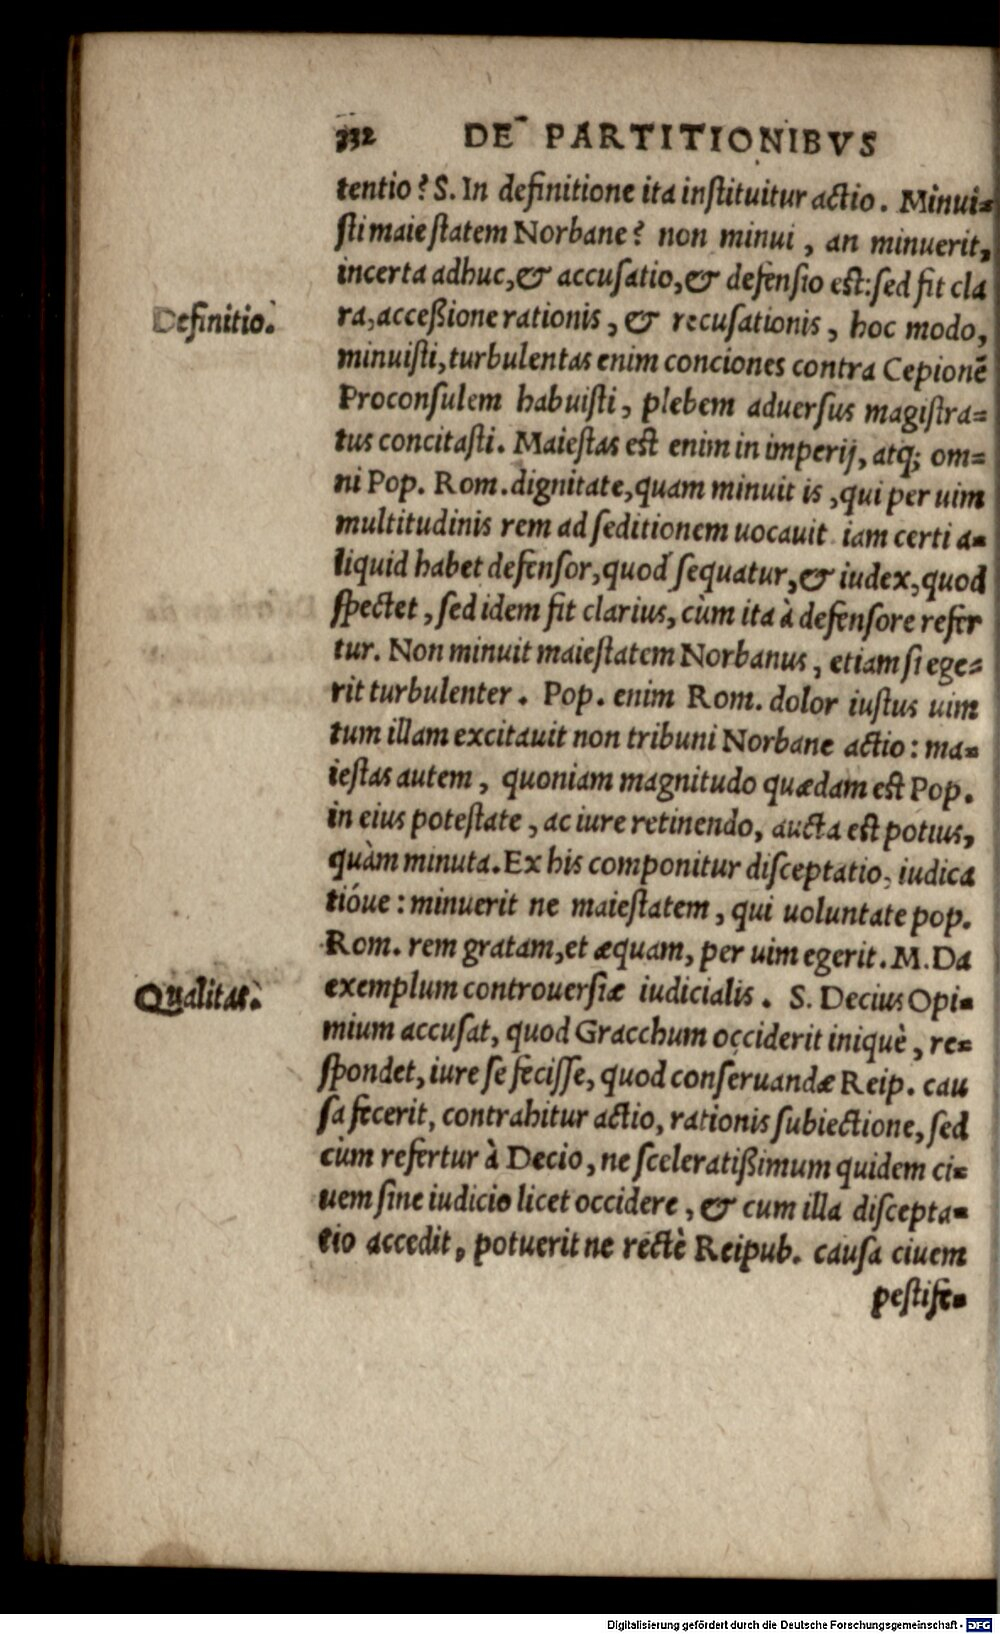 332 DE PARTITIONIBVS
tentio? S. In definitione ita instituitur actio. Minui=
sti maiestatem Norbane? non minui, an minuerit,
incerta adhuc, & accusatio, & defensio est: sed fit cla
Definitio.
ra, acceßione rationis, & recusationis, hoc modo,
minuisti, turbulentas enim conciones contra Cepionē
Proconsulem habuisti, plebem aduersus magistra=
tus concitasti. Maiestas est enim in imperij, atq; om=
ni Pop. Rom. dignitate, quam minuit is, qui per uim
multitudinis rem ad seditionem uocauit iam certi a=
liquid habet defensor, quod sequatur, & iudex, quod
spectet, sed idem fit clarius, cùm ita à defensore refer
tur. Non minuit maiestatem Norbanus, etiam si ege=
rit turbulenter. Pop. enim Rom. dolor iustus uim
tum illam excitauit non tribuni Norbane actio: ma=
iestas autem, quoniam magnitudo quædam est Pop.
in eius potestate, ac iure retinendo, aucta est potius,
quàm minuta. Ex his componitur disceptatio, iudica
tióue: minuerit ne maiestatem, qui uoluntate pop.
Rom. rem gratam, et æquam, per uim egerit. M. Da
Qualitas.
exemplum controuersiæ iudicialis. S. Decius Opi=
mium accusat, quod Gracchum occiderit iniquè, re=
spondet, iure se fecisse, quod conseruandæ Reip. cau
sa fecerit, contrahitur actio, rationis subiectione, sed
cùm refertur à Decio, ne sceleratißimum quidem ci=
uem sine iudicio licet occidere, & cum illa discepta=
tio accedit, potuerit ne rectè Reipub. causa ciuem
pestife=
Digitalisierung gefördert durch die Deutsche Forschungsgemeinschaft - DFG